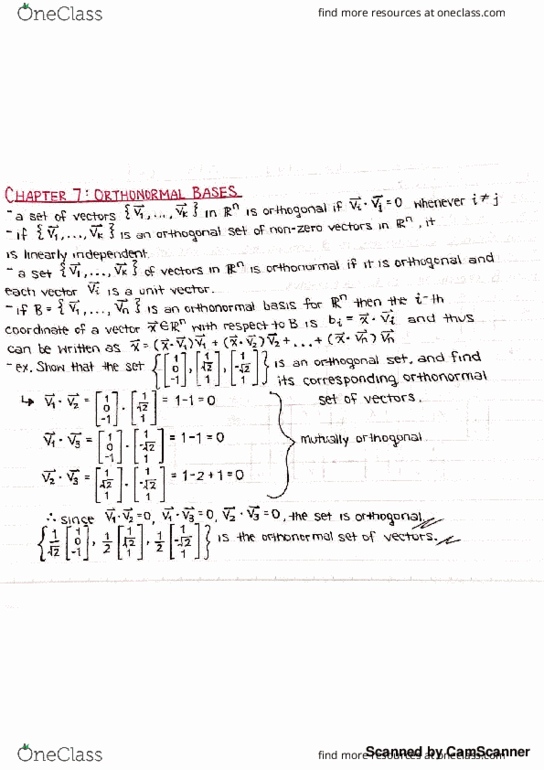 OneClass find more resources at oneclass.com
CHAPTER 7: ORTHONORMAL BASES
- a set of vectors {v⃗₁, ..., v⃗ₖ} in ℝⁿ is orthogonal if v⃗ᵢ · v⃗ⱼ = 0 whenever i ≠ j
- if {v⃗₁, ..., v⃗ₖ} is an orthogonal set of non-zero vectors in ℝⁿ, it
is linearly independent.
- a set {v⃗₁, ..., v⃗ₖ} of vectors in ℝⁿ is orthonormal if it is orthogonal and
each vector v⃗ᵢ is a unit vector.
- if B = {v⃗₁, ..., v⃗ₙ} is an orthonormal basis for ℝⁿ then the i-th
coordinate of a vector x⃗ ∈ ℝⁿ with respect to B is bᵢ = x⃗ · v⃗ᵢ and thus
can be written as x⃗ = (x⃗ · v⃗₁)v⃗₁ + (x⃗ · v⃗₂)v⃗₂ + ... + (x⃗ · v⃗ₙ)v⃗ₙ
- ex. Show that the set {[1 0 -1], [1 √2 1], [1 -√2 1]} is an orthogonal set, and find
its corresponding orthonormal
set of vectors.
↳ v⃗₁ · v⃗₂ = [1 0 -1] · [1 √2 1] = 1-1 = 0
v⃗₁ · v⃗₃ = [1 0 -1] · [1 -√2 1] = 1-1 = 0
mutually orthogonal
v⃗₂ · v⃗₃ = [1 √2 1] · [1 -√2 1] = 1-2+1 = 0
∴ since v⃗₁ · v⃗₂ = 0, v⃗₁ · v⃗₃ = 0, v⃗₂ · v⃗₃ = 0, the set is orthogonal
{1/√2 [1 0 -1], 1/2 [1 √2 1], 1/2 [1 -√2 1]} is the orthonormal set of vectors.
OneClass find more resources at oneclass.com
Scanned by CamScanner